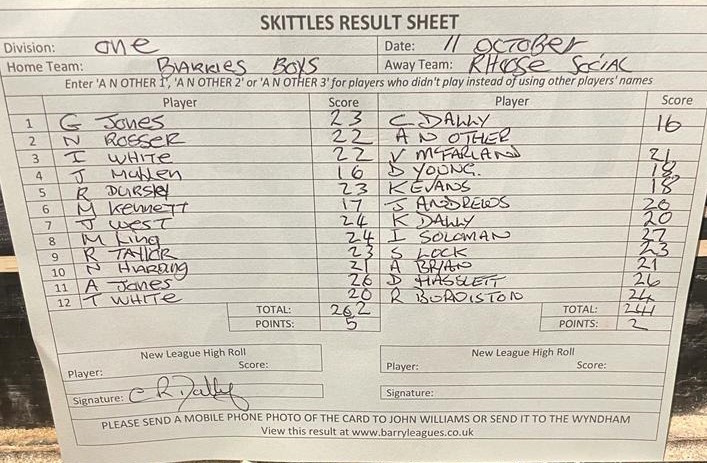 SKITTLES RESULT SHEET
Division: one Date: 11 OCTOBER
Home Team: BARRIES BOYS Away Team: RHOOSE SOCIAL
Enter 'A N OTHER 1', 'A N OTHER 2' or 'A N OTHER 3' for players who didn't play instead of using other players' names
Player Score Player Score
1 G Jones 23 C DALLY 16
2 N ROSSER 22 A N OTHER
3 I WHITE 22 V MCFARLAND 21
4 J Mullen 16 D YOUNG. 18
5 R DURSLEY 23 K EVANS 18
6 M KENNETT 17 J ANDREWS 20
7 J WEST 24 K DALLY 20
8 M King 24 I SOLOMAN 27
9 R TAYLOR 23 S LOCK 23
10 N HARDING 21 A BRYAN 21
11 A Jones 26 D HASSLETT 26
12 T WHITE 20 R BURDISTON 24
TOTAL: 262 TOTAL:
POINTS: 5 POINTS: 2
New League High Roll New League High Roll
Player: Score: Player: Score:
Signature: C R Dally Signature:
PLEASE SEND A MOBILE PHONE PHOTO OF THE CARD TO JOHN WILLIAMS OR SEND IT TO THE WYNDHAM
View this result at www.barryleagues.co.uk